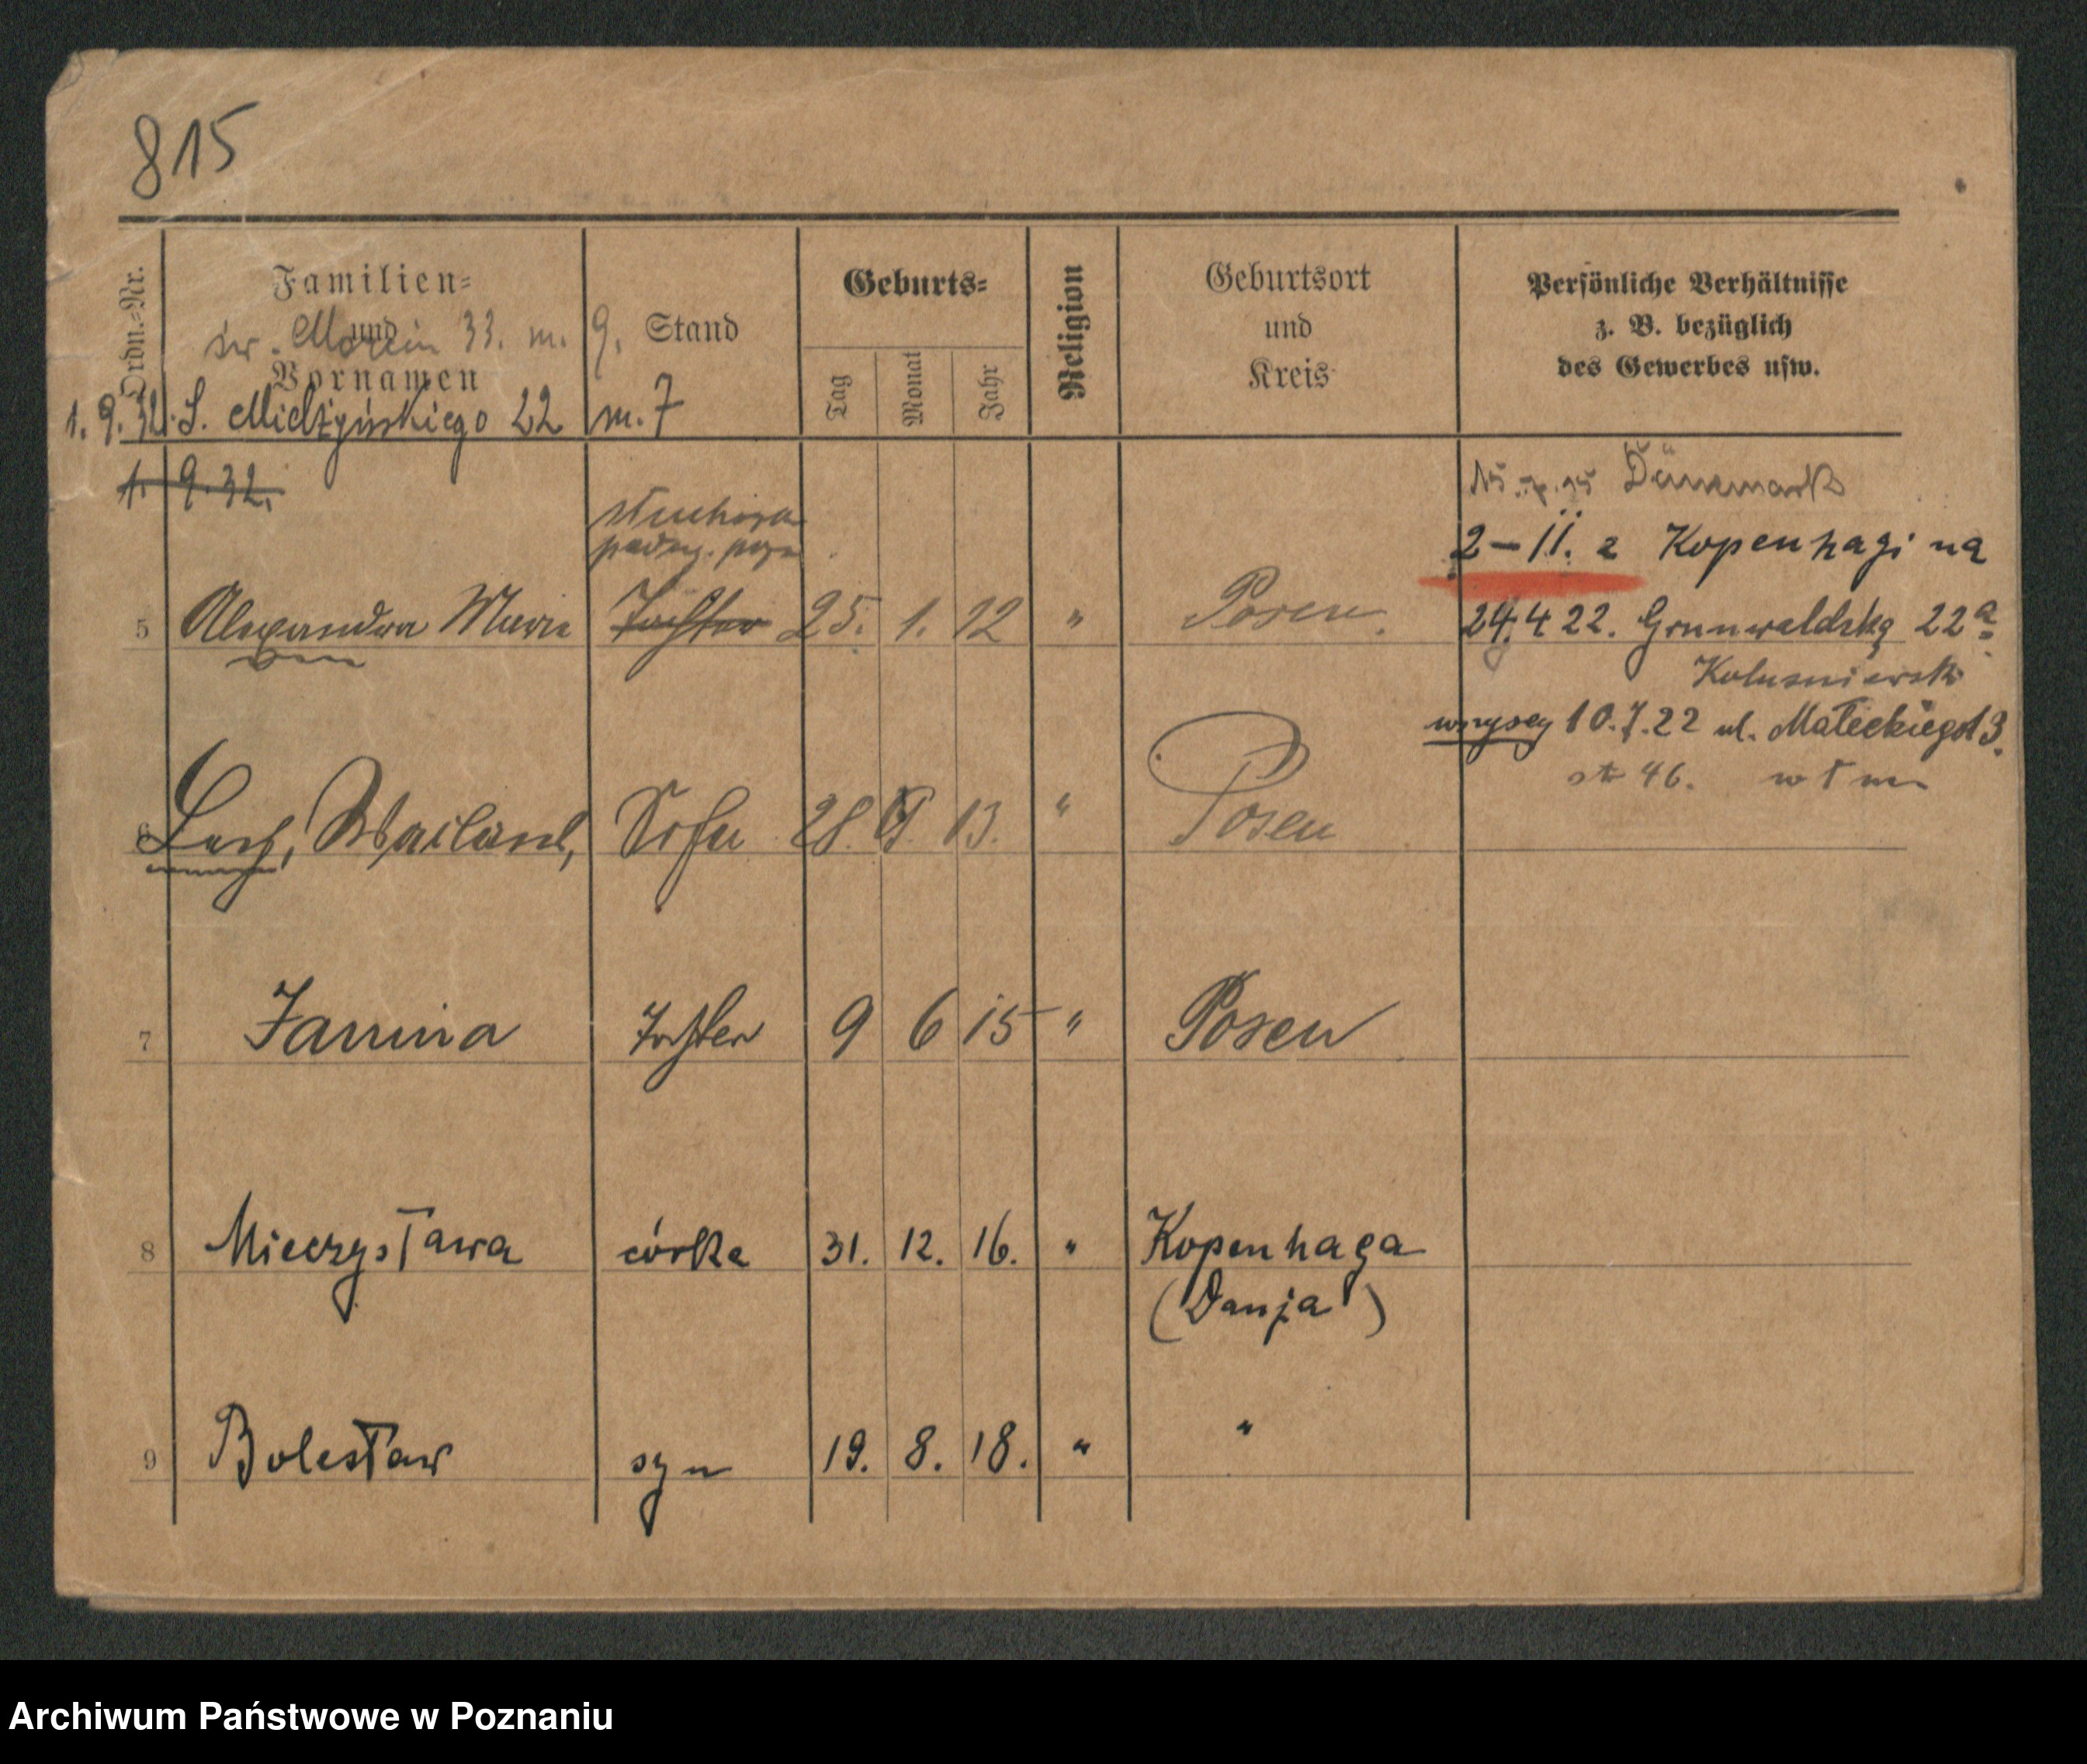 815
Ordn.=Nr.
Familien=
und
Vornamen
Stand
Geburts=
Tag
Monat
Jahr
Religion
Geburtsort
und
Kreis
Persönliche Verhältnisse
z. B. bezüglich
des Gewerbes usw.
św. Marcin 33. m. 9.
1. 9. 32. S. Mielżyńskiego 22 m. 7
1. 9. 32.
Dänemark
2-11. z Kopenhagi na
5 Alexandra Marie Tochter 25. 1. 12 " Posen.
24.4 22. Grunwaldzką 22a
wszyscy 10.7.22 ul. Małeckiego 13.
46.
6 Lech, Sohn 28. 13. " Posen
7 Janina Tochter 9 6 15 " Posen
8 Mieczysława córka 31. 12. 16. " Kopenhaga
(Danja)
9 Bolesław syn 19. 8. 18. " "
Archiwum Państwowe w Poznaniu